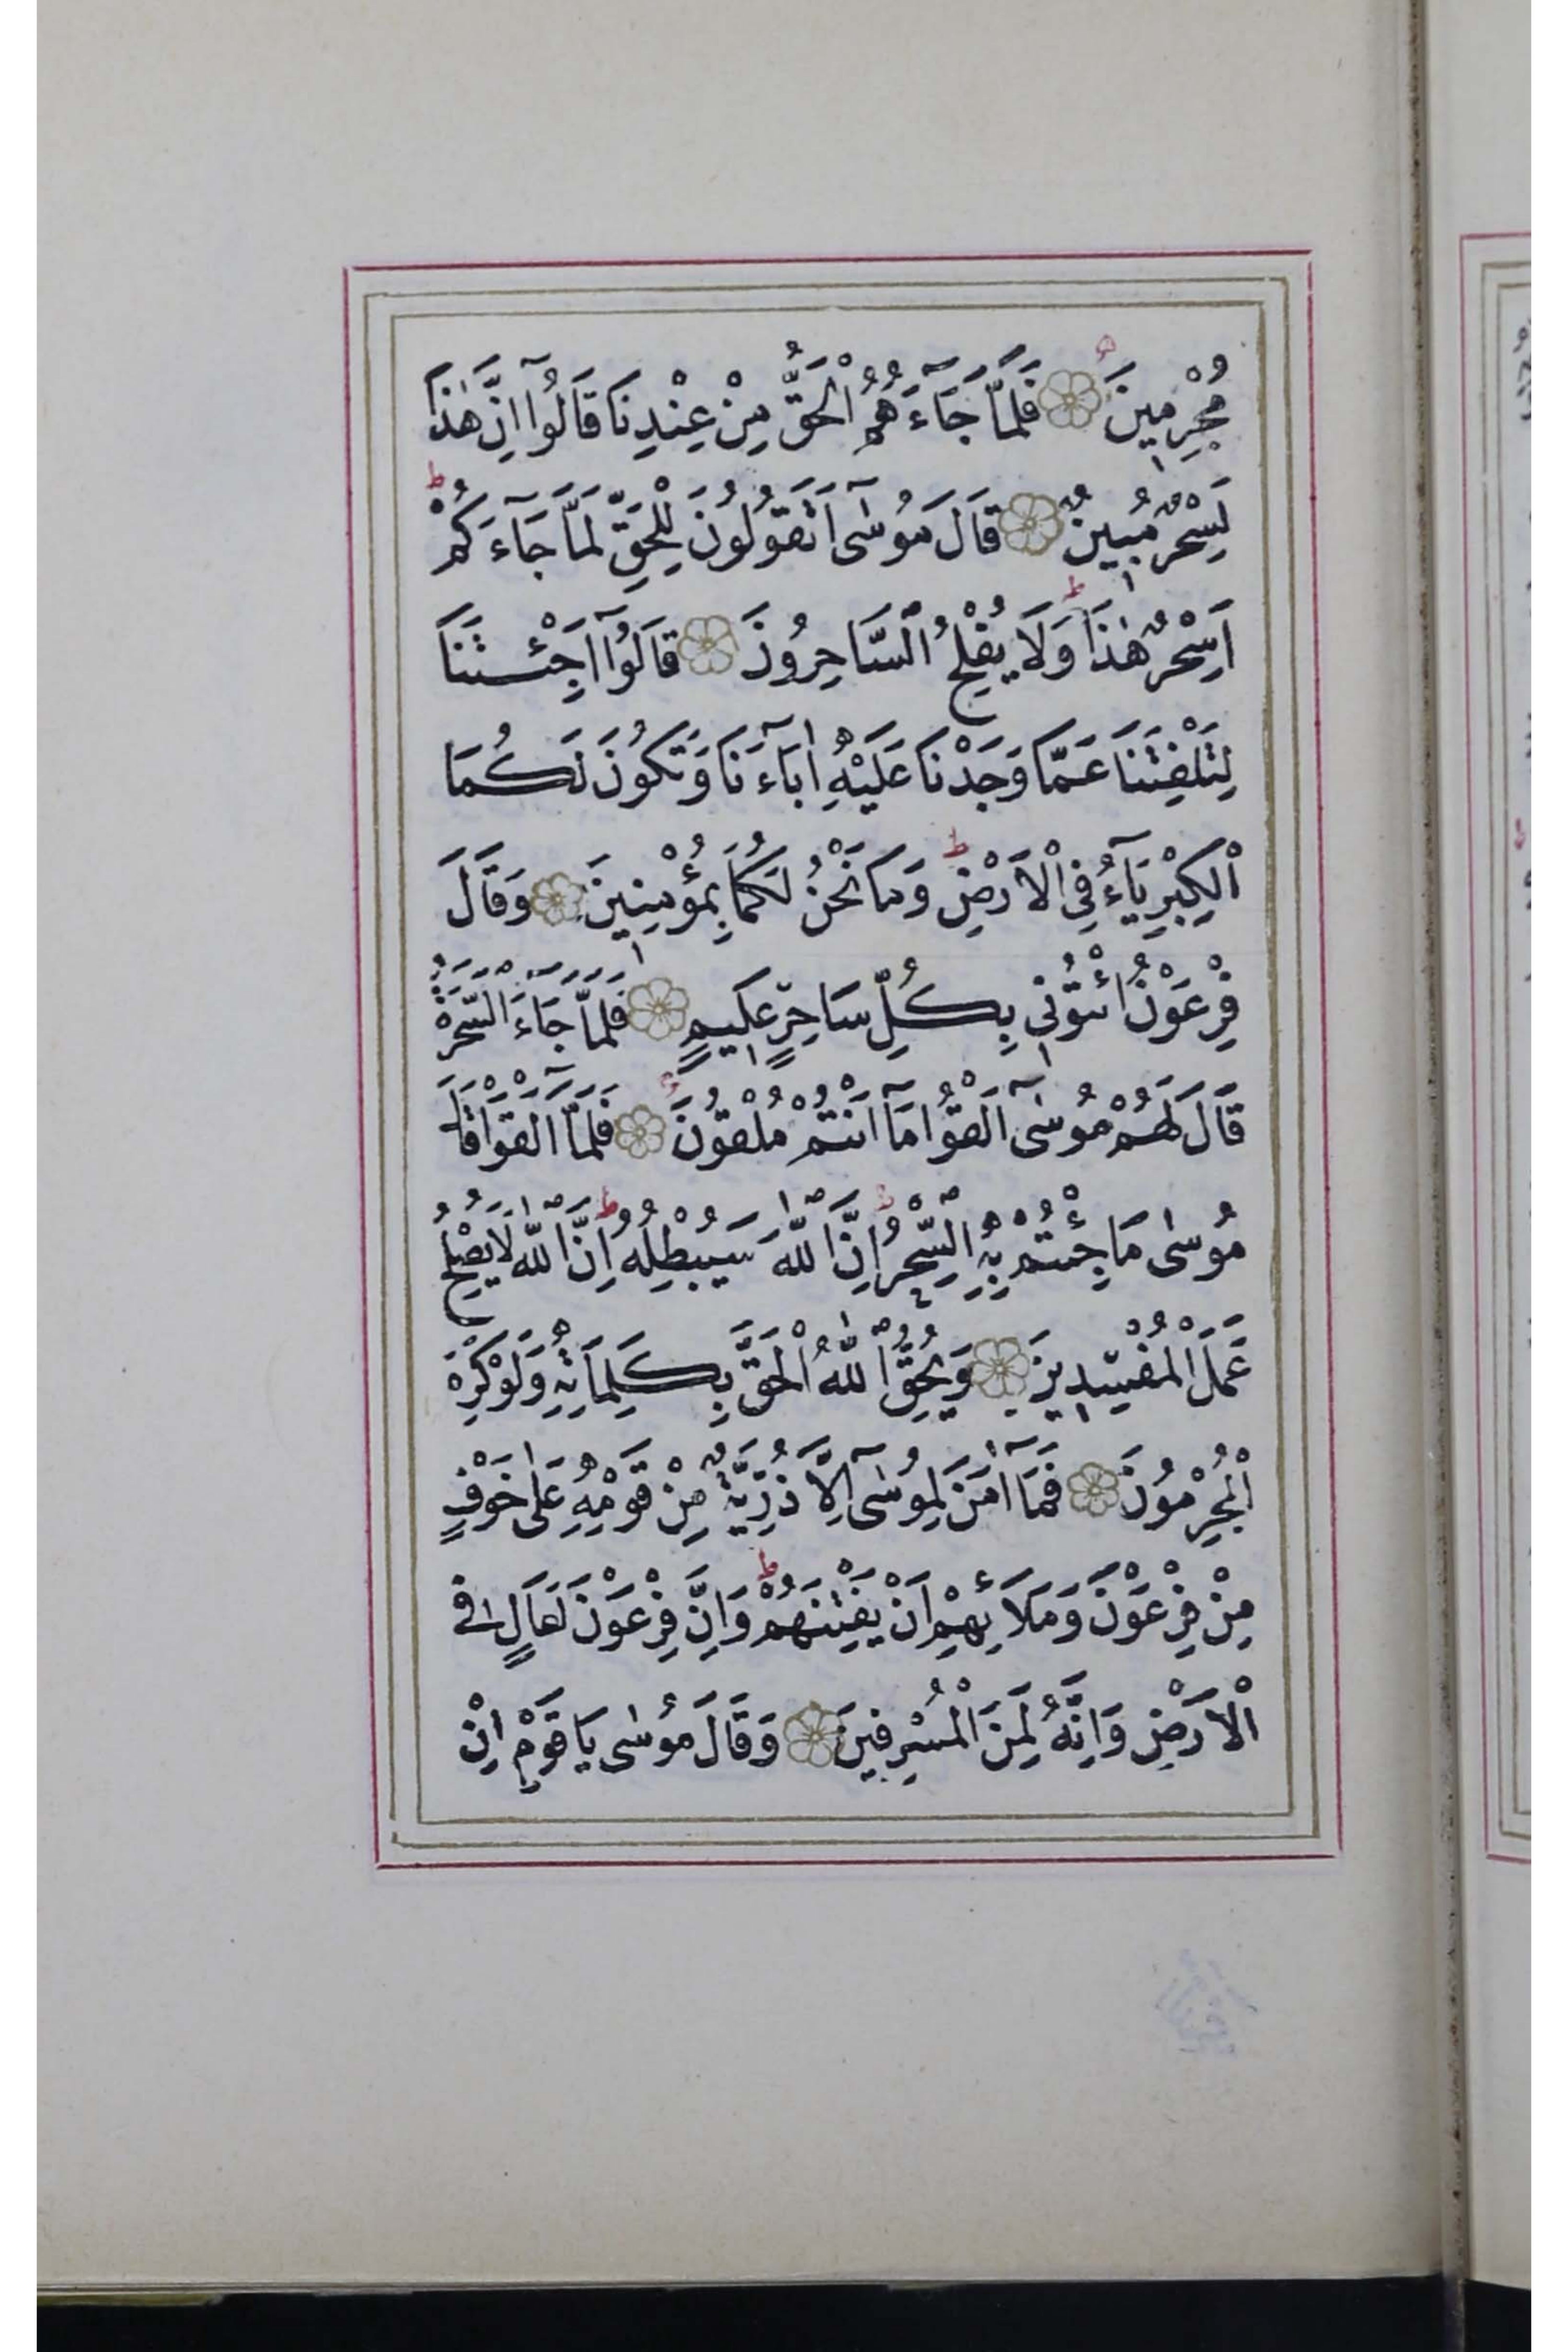 مُجْرِمِينَ فَلَمَّا جَآءَهُمُ الْحَقُّ مِنْ عِنْدِنَا قَالُوٓا اِنَّ هٰذَا
لَسِحْرٌ مُبِينٌ قَالَ مُوسٰٓى اَتَقُولُونَ لِلْحَقِّ لَمَّا جَآءَكُمْ
اَسِحْرٌ هٰذَا وَلَا يُفْلِحُ السَّاحِرُونَ قَالُوٓا اَجِئْتَنَا
لِتَلْفِتَنَا عَمَّا وَجَدْنَا عَلَيْهِ اٰبَآءَنَا وَتَكُونَ لَكُمَا
الْكِبْرِيَآءُ فِي الْاَرْضِ وَمَا نَحْنُ لَكُمَا بِمُؤْمِنِينَ وَقَالَ
فِرْعَوْنُ ائْتُونِي بِكُلِّ سَاحِرٍ عَلِيمٍ فَلَمَّا جَآءَ السَّحَرَةُ
قَالَ لَهُمْ مُوسٰٓى اَلْقُوا مَآ اَنْتُمْ مُلْقُونَ فَلَمَّآ اَلْقَوْا قَالَ
مُوسٰى مَا جِئْتُمْ بِهِ السِّحْرُ اِنَّ اللّٰهَ سَيُبْطِلُهُ اِنَّ اللّٰهَ لَا يُصْلِحُ
عَمَلَ الْمُفْسِدِينَ وَيُحِقُّ اللّٰهُ الْحَقَّ بِكَلِمَاتِهِ وَلَوْ كَرِهَ
الْمُجْرِمُونَ فَمَآ اٰمَنَ لِمُوسٰٓى اِلَّا ذُرِّيَّةٌ مِنْ قَوْمِهِ عَلٰى خَوْفٍ
مِنْ فِرْعَوْنَ وَمَلَا۬ئِهِمْ اَنْ يَفْتِنَهُمْ وَاِنَّ فِرْعَوْنَ لَعَالٍ فِي
الْاَرْضِ وَاِنَّهُ لَمِنَ الْمُسْرِفِينَ وَقَالَ مُوسٰى يَا قَوْمِ اِنْ